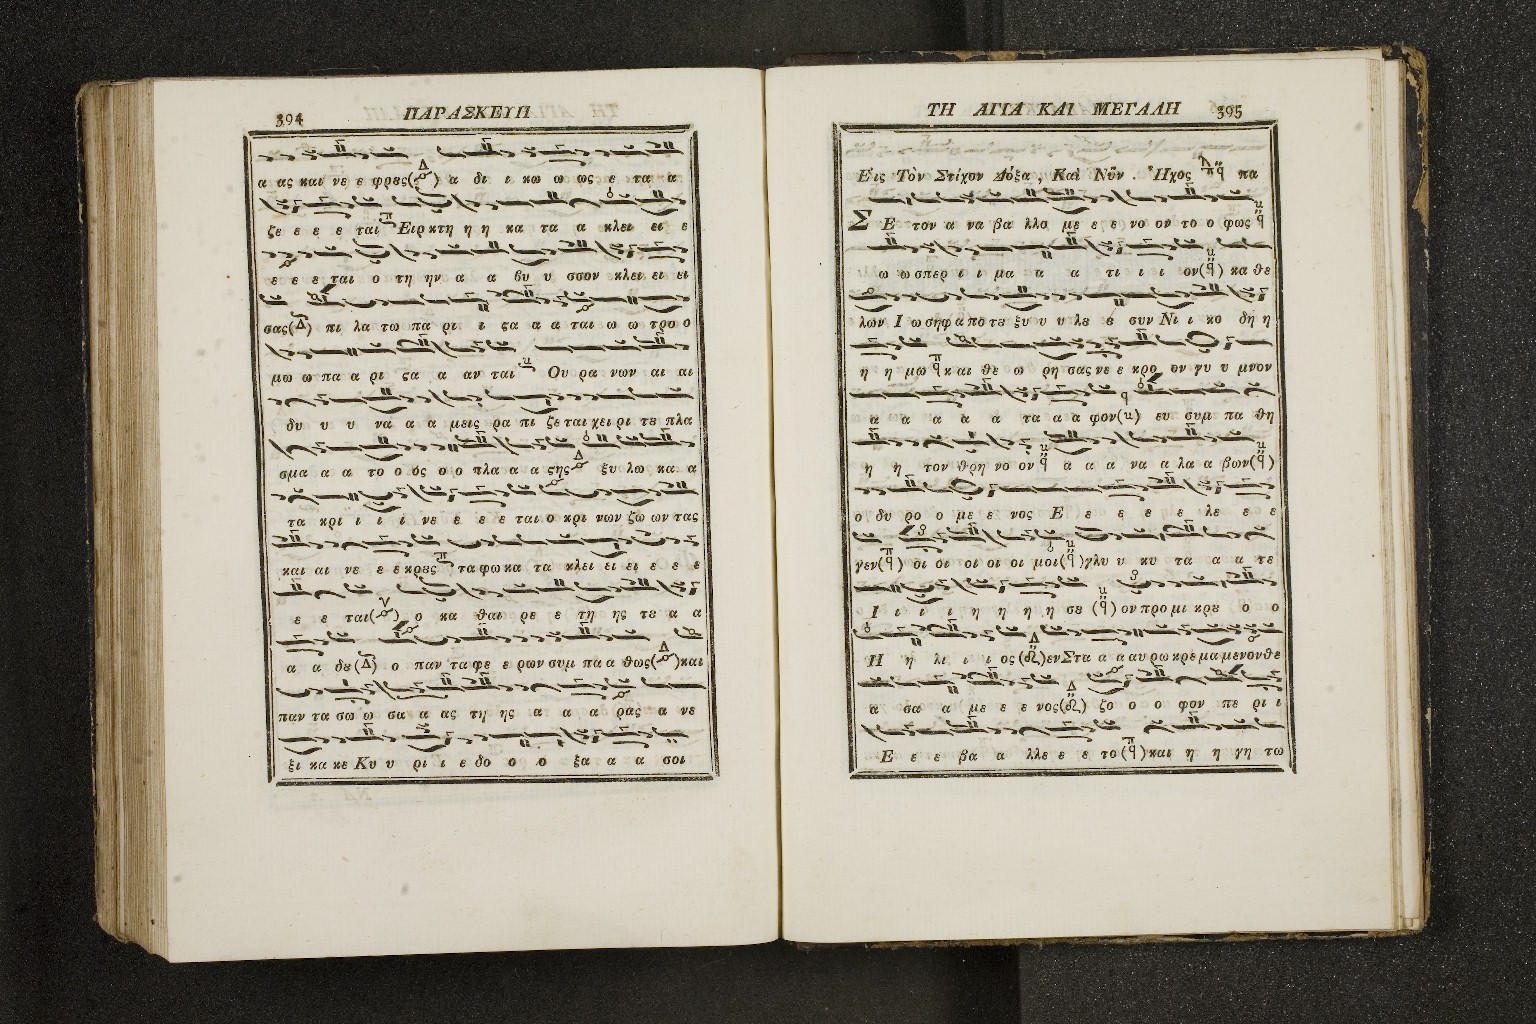 394 ΠΑΡΑΣΚΕΥΗ
α ας και νε ε φρȣς(Δ) α δι ι κω ω ως ε τα α
ζε ε ε ε ται Ειρκτη η η κα τα α κλει ει ε
ε ε ε ται ο τη ην α α βυ υ σσον κλει ει ει
σας(Δ) πι λα τω πα ρι ι ϛα α α ται ω ω τρο ο
μω ω πα α ρι ϛα α αν ται Ου ρα νων αι αι
δυ υ υ να α α μεις ρα πι ζε ται χει ρι τȣ πλα
σμα α α το ο ος ο ο πλα α α ϛης ξυ λω κα α
τα κρι ι ι ι νε ε ε ε ται ο κρι νων ζω ων τας
και αι νε ε ε κρȣς τα φω κα τα κλει ει ει ε ε ε
ε ε ται ο κα θαι ρε ε τη ης τȣ α α
α α δȣ(Δ) ο παν τα φε ε ρων συμ πα α θως και
παν τα σω ω σα α ας τη ης α α α ρας α νε
ξι κα κε Κυ υ ρι ι ε δο ο ο ξα α α σοι
ΤΗ ΑΓΙΑ ΚΑΙ ΜΕΓΑΛΗ 395
Εἰς Τὸν Στίχον Δόξα, Καὶ Νῦν. Ἦχος πα
Σ Ε τον α να βα λλο με ε ε νο ον το ο φως
ω ω σπερ ι ι μα α α τι ι ι ον κα θε
λων Ι ω σηφ α πο τȣ ξυ υ υ λȣ ȣ συν Νι ι κο δη η
η η μω και θε ω ρη σας νε ε κρο ον γυ υ μνον
α α α α α τα α α φον ευ συμ πα θη
η η τον θρη νο ον α α α να α λα α βων
ο δυ ρο ο με ε νος Ε ε ε ε ε ε λε ε ε
γεν οι οι οι οι οι μοι γλυ υ κυ τα α α τε
Ι ι ι ι η η η η σȣ ον προ μι κρȣ ο ο
Η η λι ι ι ος εν Στα α α αυ ρω κρε μα μενον θε
α σα α με ε ε νος ζο ο ο φον πε ρι ι
Ε ε ε βα α λλε ε ε το και η η γη τω